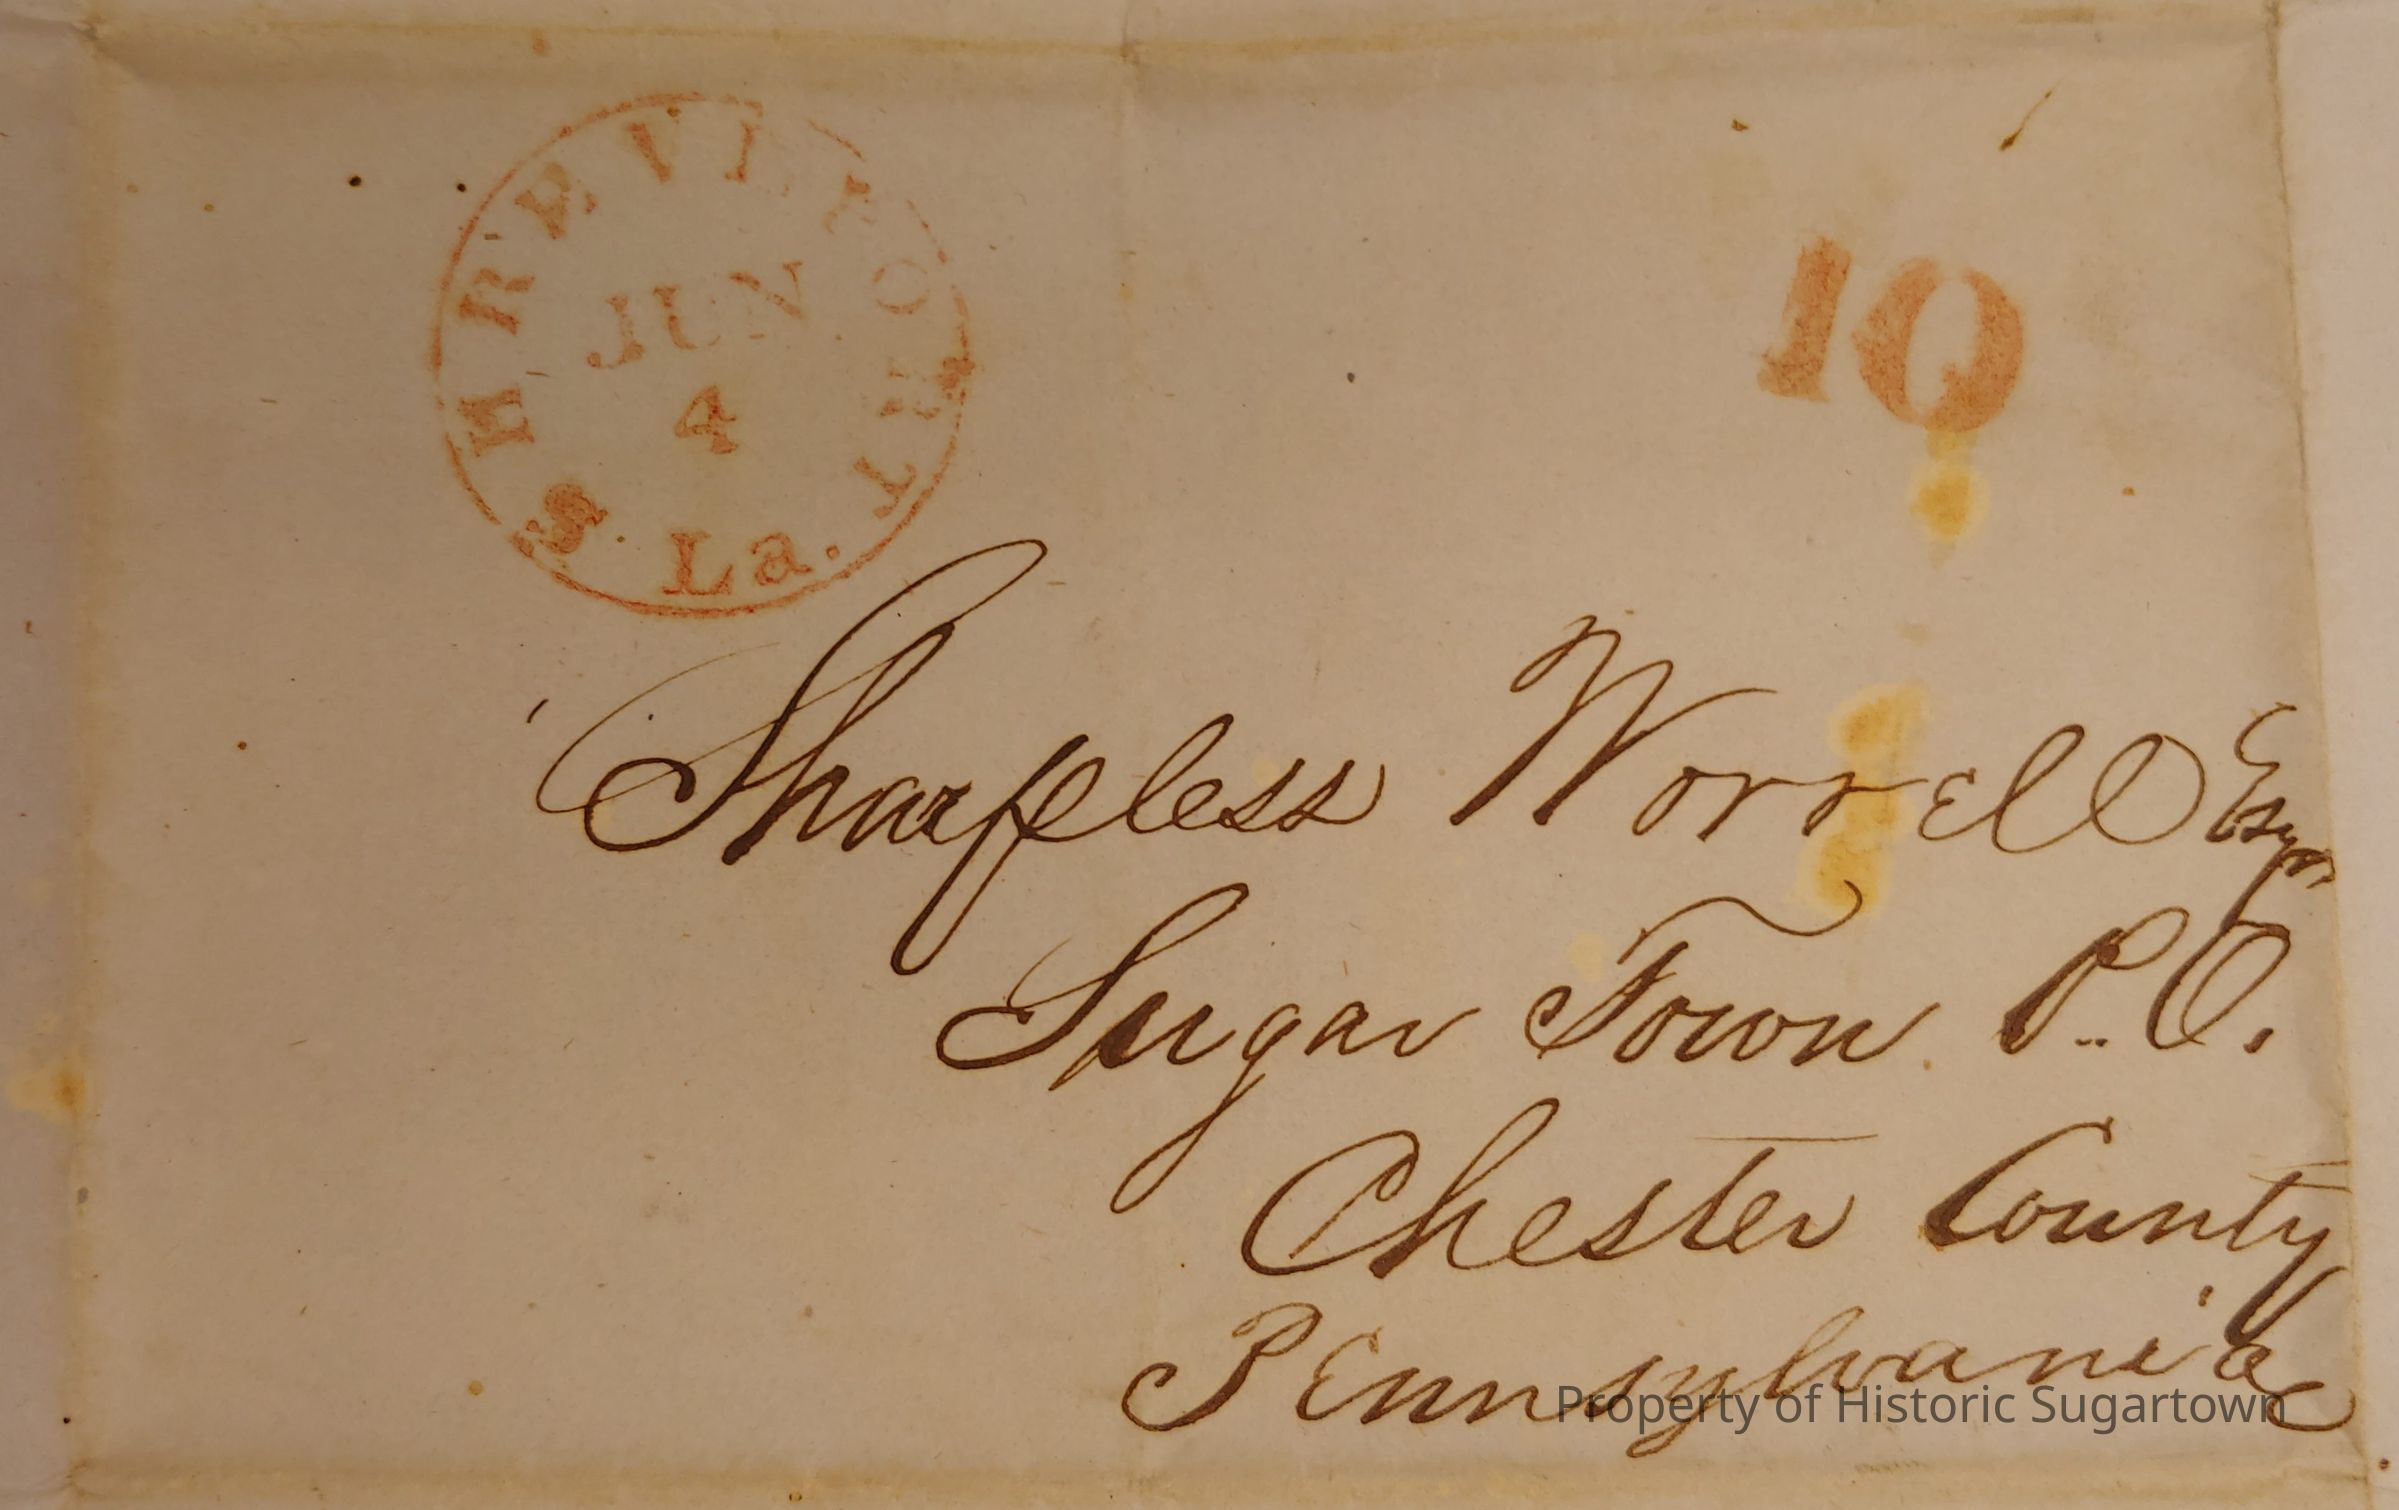 SHREVEPORT
JUN
4
La.
10
Sharpless Worrell Esqr
Sugar Town P.O.
Chester County
Pennsylvania
Property of Historic Sugartown